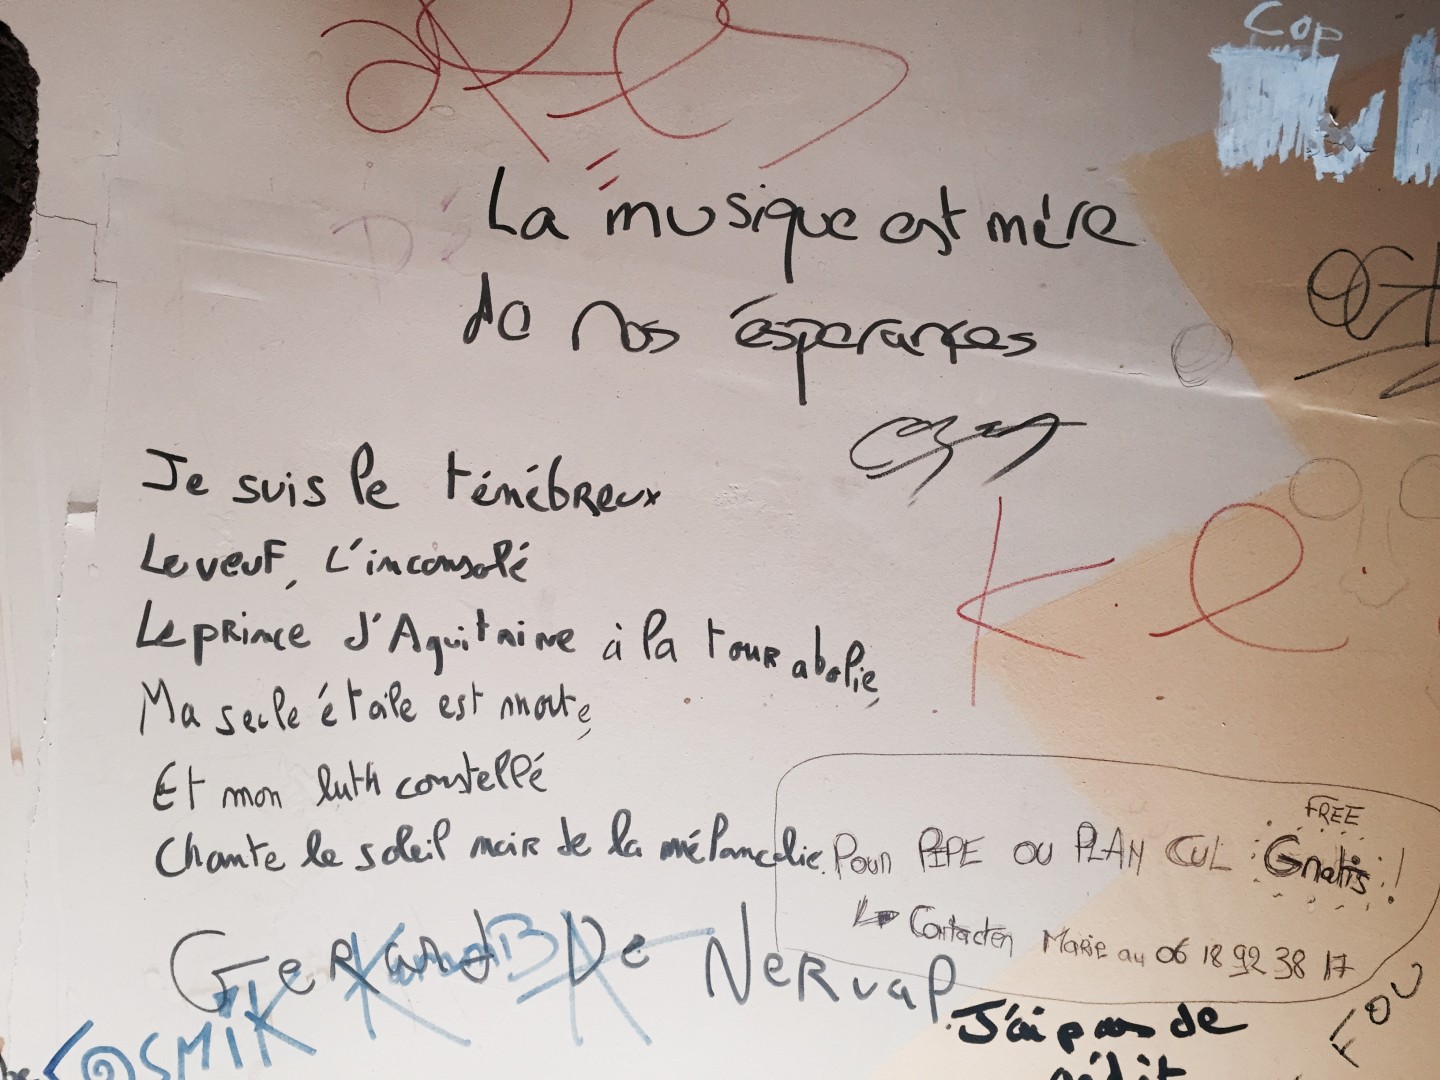 Cop
La musique est mère
de nos éspérances
Je suis le ténébreux
Le veuf, L'inconsolé
Le prince d'Aquitaine à la tour abolie,
Ma seule étoile est morte,
Et mon luth constellé
Chante le soleil noir de la mélancolie.
Gerard De Nerval
Pour PIPE OU PLAN CUL Gratis !
FREE
Contacter Marie au 06 18 92 38 17
FOU
J'ai pas de
COSMIK